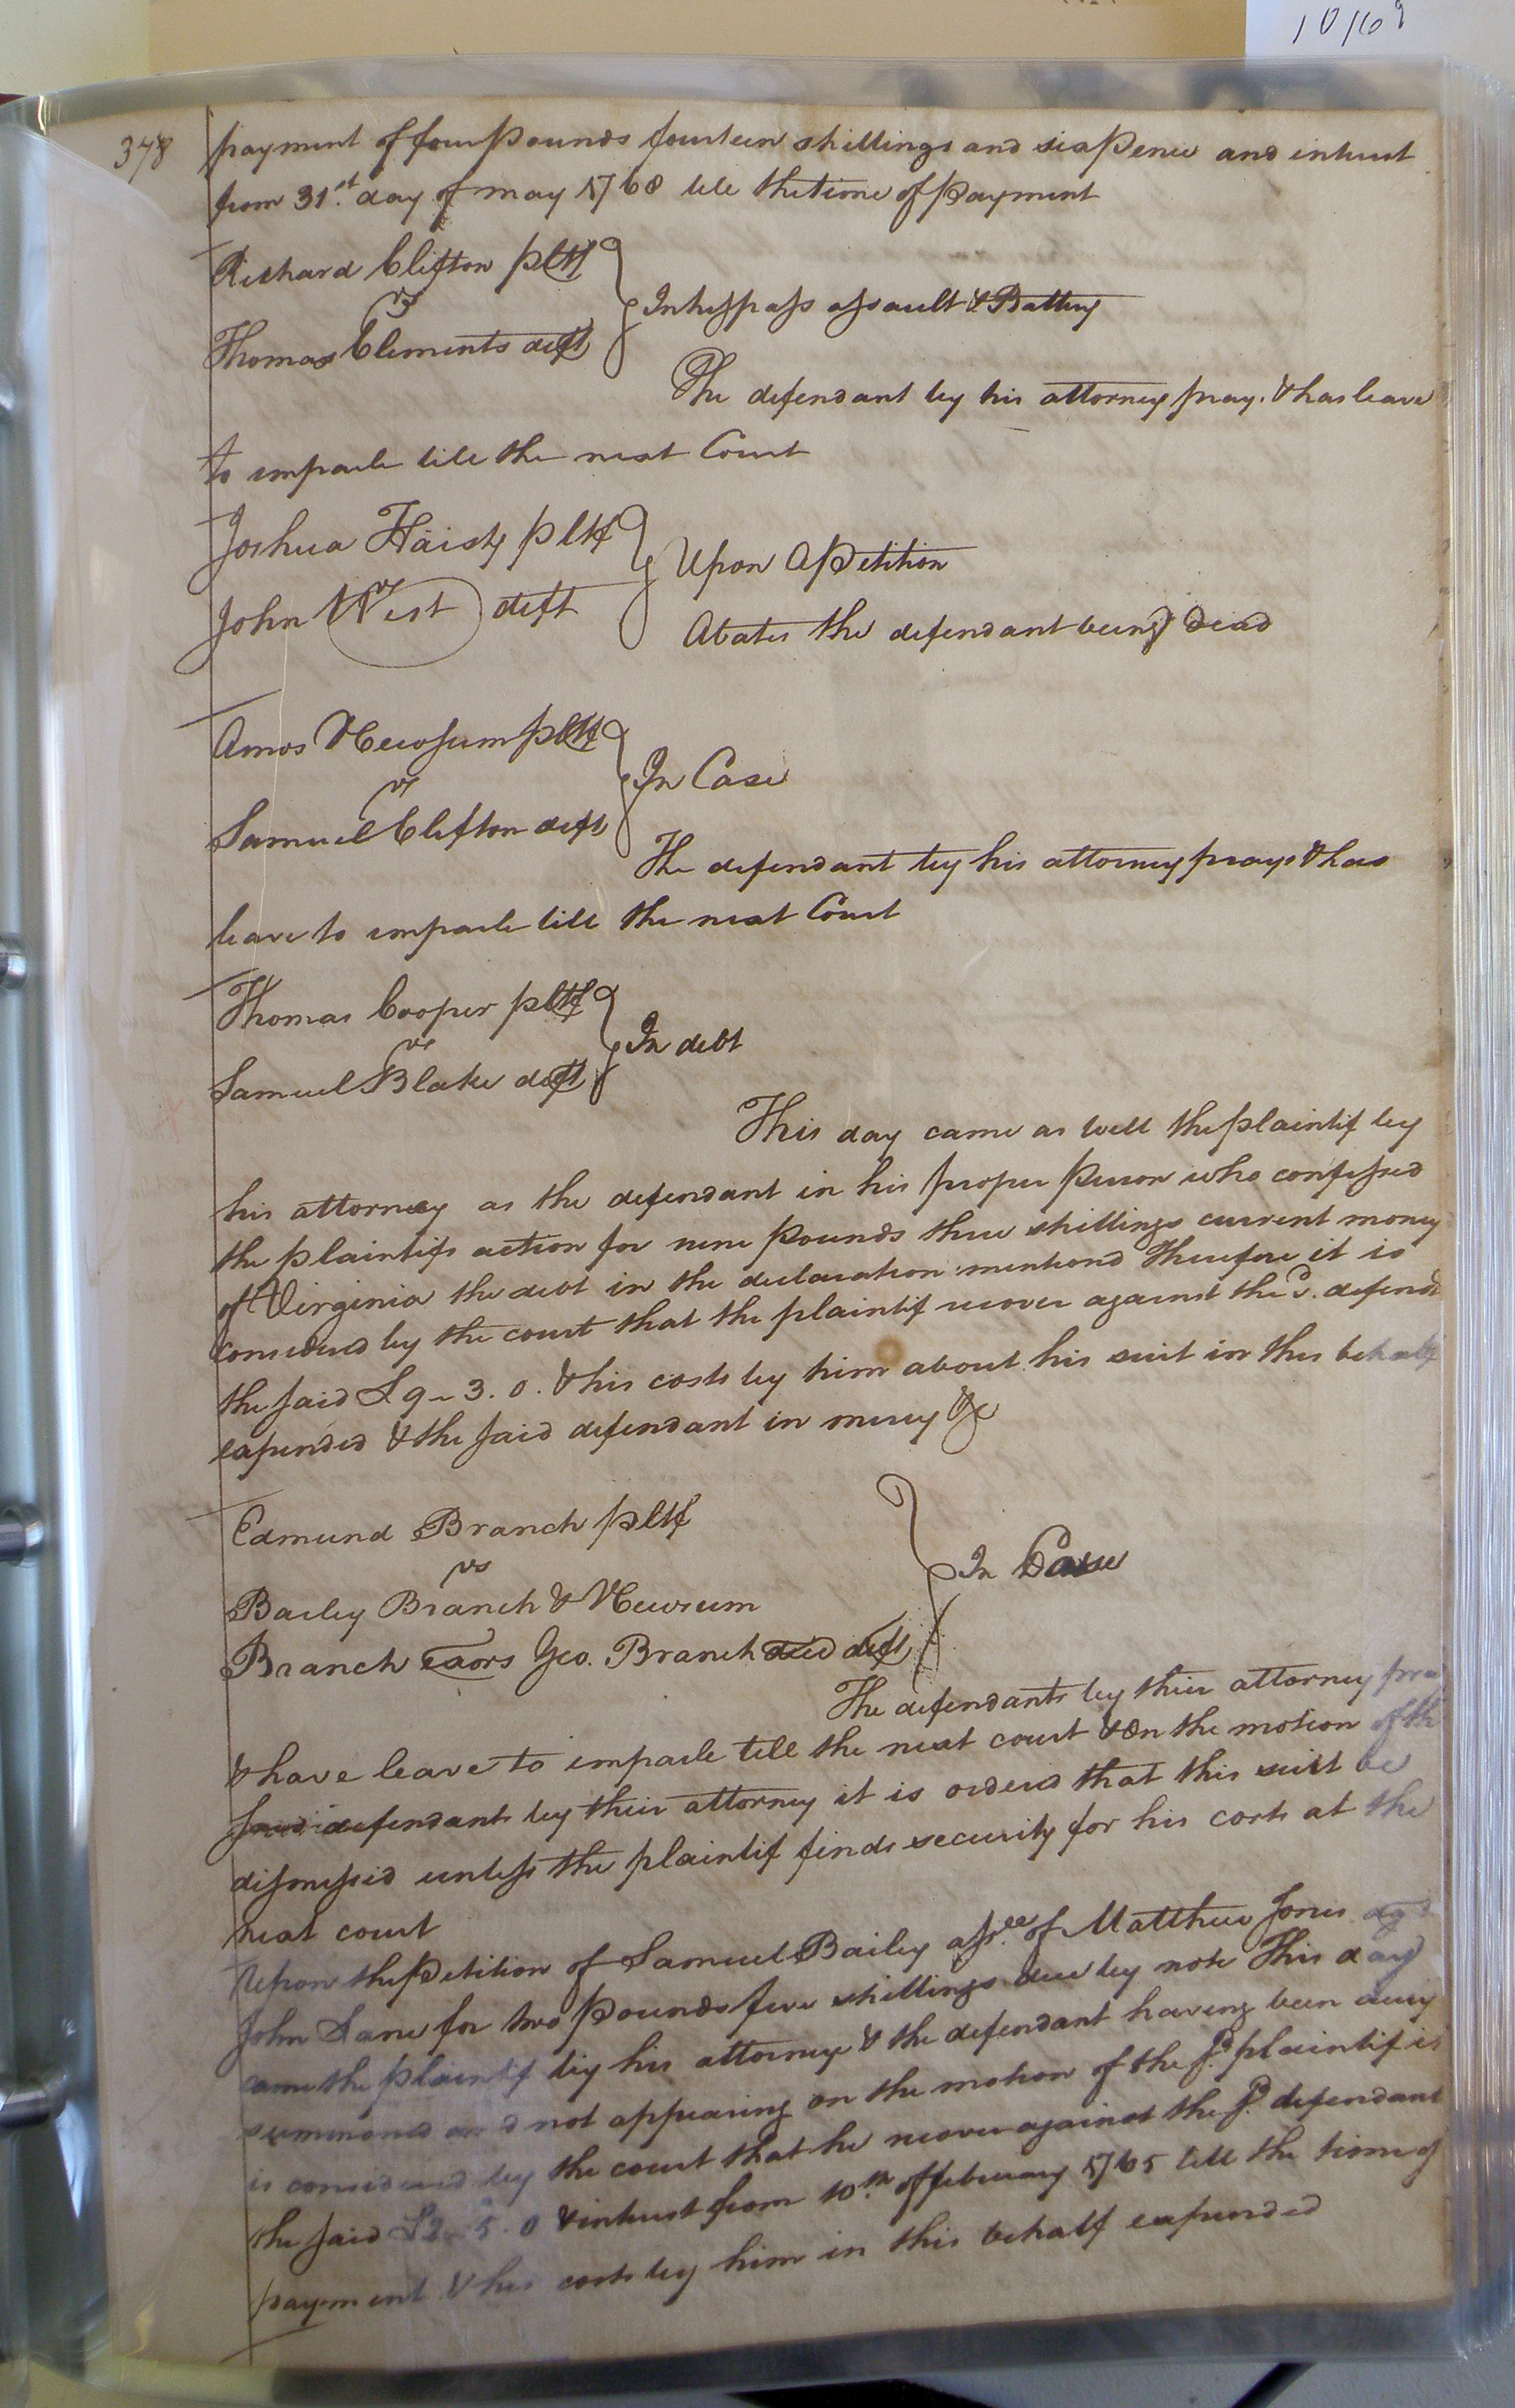 10/69
378
payment of four pounds fourteen shillings and sixpence and intrust
from 31st day of may 1768 till the time of payment
Richard Clifton pltf
vs
Thomas Clements deft
In trespass assault & Battery
The defendant by his attorney pray. & has leave
to imparle till the next Court
Joshua Haisty pltf
vs
John West deft
Upon A Petition
Abates the defendant being Dead
Amos Newsum pltf
vs
Samuel Clifton deft
In Case
The defendant by his attorney prays & has
leave to imparle till the next Court
Thomas Cooper pltf
vs
Samuel Blake deft
In debt
This day came as well the plaintif by
his attorney as the defendant in his proper person who confessed
the plaintifs action for nine pounds three shillings current money
of Virginia the debt in the declaration mentiond Therefore it is
considered by the court that the plaintif recover against the sd. defendt
the said £ 9 - 3. 0. & his costs by him about his suit in this behalf
expended & the said defendant in mercy &c
Edmund Branch pltf
vs
Bailey Branch & Newsum
Branch Exors Geo. Branch decd deft
In Case
The defendants by their attorney pra
& have leave to imparle till the next court & On the motion of th
said defendants by their attorney it is orderd that this suit be
dismissed unless the plaintif finds security for his costs at the
next court
Upon the Petition of Samuel Bailey assee. of Matthew Jones agt
John Lane for two pounds five shillings due by note This day
came the plaintif by his attorney & the defendant having been duly
summoned and not appearing on the motion of the sd. plaintif it
is considered by the court that he recover against the sd. defendant
the said £2 - 5. 0 & intrust from 10th. of february 1765 till the time of
payment & his costs by him in this behalf expended